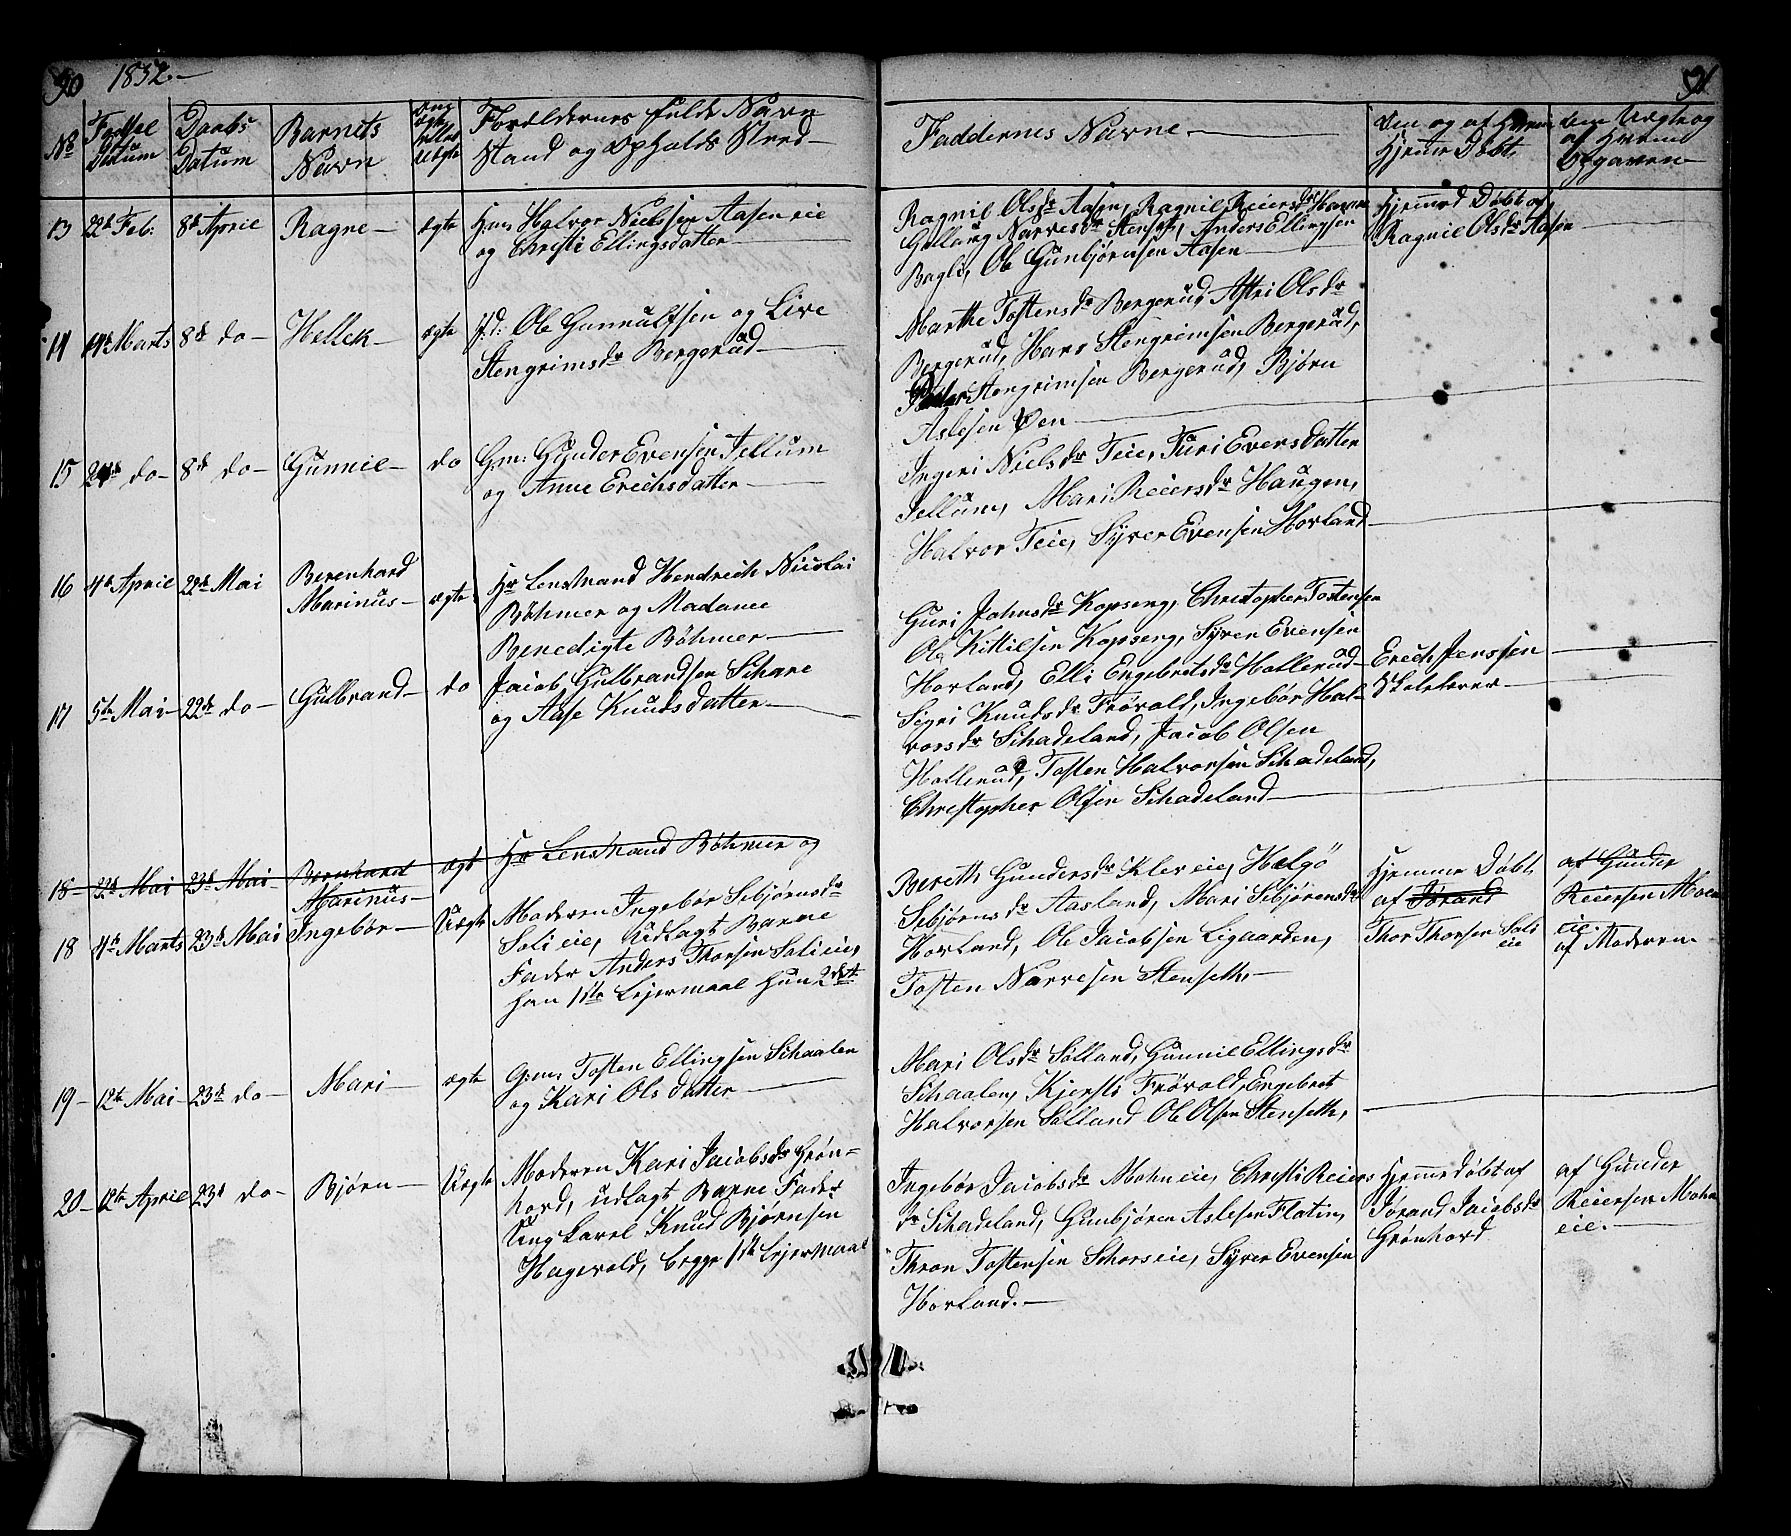 90 1832.—
91
No
Fødsel Datum
Daabs Datum
Barnets Navn
Om ægte eller Uægte
Forældernes fulde Navn Stand og Opholds Sted—
Faddernes Navne—
Om og af Hvem Hjemme Døbt
Om Uægte og af Hvem Opgaven—
13 22de Feb: 8de April Ragne— ægte
Hm. Halvor Nielssen Aasen eie
og Christi Ellingsdatter—
Ragnil Olsdr Aasen, Ragnil Reiersdr
Gullaug Narvesdr Stenseth, Anders Ellingssen
Bagli, Ole Gunbjørnsen Aasen—
Hjemmed Døbt af
Ragnil Olsdr Aasen
14 14de Marts 8de do— Hellek— ægte
Ole Gunnulfsen og Live
Stengrimsdr Bergerud—
Marthe Tostensdr Bergerud Astri Olsdr
Bergerud, Hans Stengrimsen Bergerud,
Peder Stengrimsen Bergerud, Bjørn
Aslesen Øen—
15 24de do— 8de do— Gunnil— do
Gm: Gunder Evensen Jellum
og Anne Erichsdatter—
Ingeri Nielsdr Teie, Turi Eversdatter
Jellum, Mari Reiersdr Haugen,
Halvor Teie, Syver Evensen Horland—
16 4de April 22de Mai Berenhard Marinus— ægte
Hr Lensmand Hendrich Nicolai
Böhmer og Madame
Benedigte Böhmer—
Guri Jahnsdr Kopseng, Christopher Tostensen
Ole Kittilsen Kopseng, Syver Evensen
Horland, Elli Engebretsdr Hollerud—
Erich Jenssen
Skolelærer—
17 5te Mai— 22de do— Gulbrand— do
Jacob Gulbrandsen Schare
og Aase Knudsdatter—
Sigri Knudsdr Frövold, Ingebör Hal-
vorsdr Schadeland, Jacob Olsen
Hollerud, Tosten Halvorsen Schadeland,
Christopher Olsen Schadeland—
18— 22de Mai 23de Mai— Bernhard Marinus— ægt
Hr Lensmand Böhmer og
18 4de Marts 23de Mai Ingebör— Uægte
Moderen Ingebör Sebjørnsdr
Soli eie, Udlagt Barne
Fader Anders Thorsen Soli eie,
han 1ste Lejermaal hun 2det
Bereth Gundersdr Klev eie, Hælgö
Sebjørnsdr Aasland, Mari Sebjørensdr
Horland, Ole Jacobsen Ligaarden,
Tosten Narvesen Stenseth—
Hjemme Døbt
af Jörand
Thor Thorsen Soli
eie
af Gunder
Reiersen Moen
eie.
af Moderen—
19— 12te Mai— 23de do— Mari— ægte
Gm, Tosten Ellingsen Schaalen
og Kari Olsdatter—
Mari Olsdr Sølland, Gunnil Ellingsdr
Schaalen, Kjersti Frövold, Engebret
Halvorsen Sølland Ole Olsen Stenseth,
20— 12te April 23de do— Bjørn— Uægte
Moderen Kari Jacobsdr Grøn-
hord, udlagt Barne Fader
Ung Karel Knud Bjørnsen
Hagevold, begge 1ste Lejermaal
Ingebör Jacobsdr Mohn eie, Christi Reiers
dr Schadeland, Gunbjören Aslesen Flatin,
Thron Tostensen Schors eie, Syver Evensen
Horland.—
Hjemmedøbt af
Jörand Jacobsdr
Grønhord
af Gunder
Reiersen Mohn
eie.—